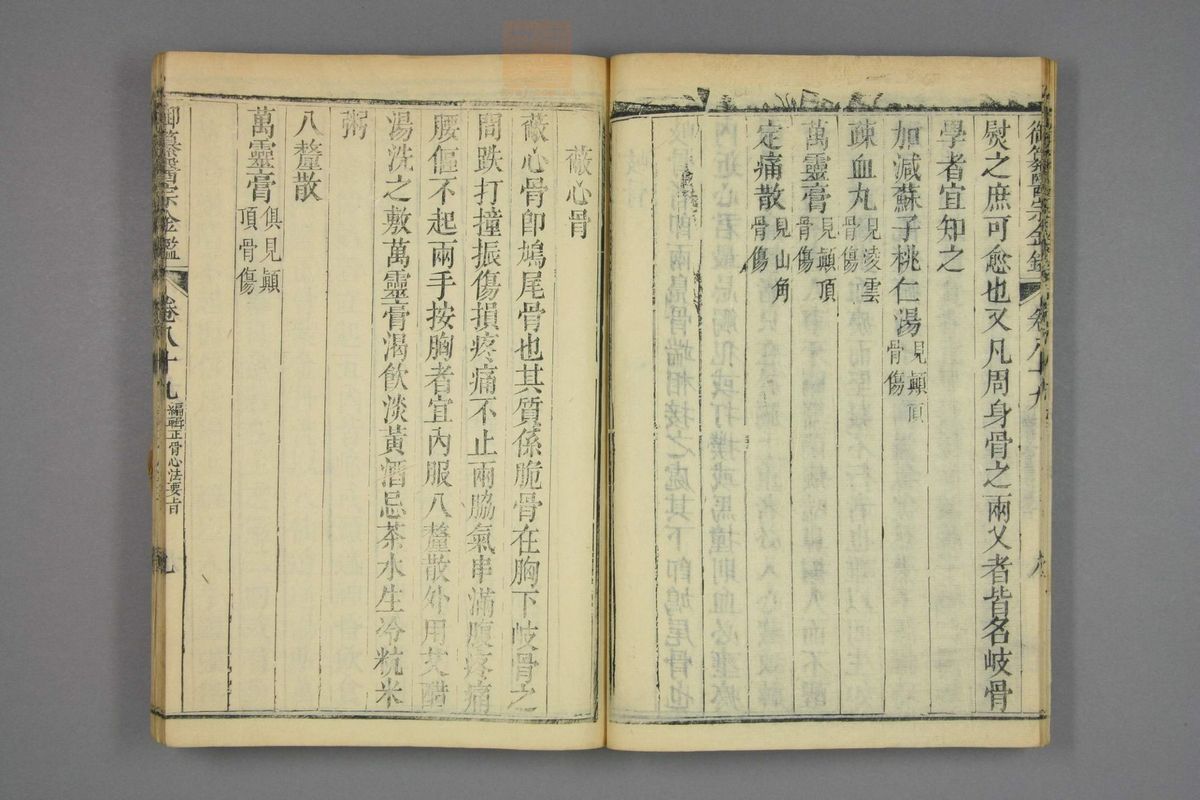 御纂醫宗金鑑 卷八十九
熨之庶可愈也又凡周身骨之兩叉者皆名岐骨
學者宜知之
加減蘇子桃仁湯見顚頂骨傷
疎血丸見淩雲骨傷
萬靈膏見顚頂骨傷
定痛散見山角骨傷
蔽心骨
蔽心骨卽鳩尾骨也其質係脆骨在胸下岐骨之
間跌打撞振傷損疼痛不止兩脇氣串滿腹疼痛
腰傴不起兩手按胸者宜內服八釐散外用艾醋
湯洗之敷萬靈膏渴飮淡黃酒忌茶水生冷粇米
粥
八釐散
萬靈膏俱見顚頂骨傷
御纂醫宗金鑑 卷八十九 編輯正骨心法要旨 九